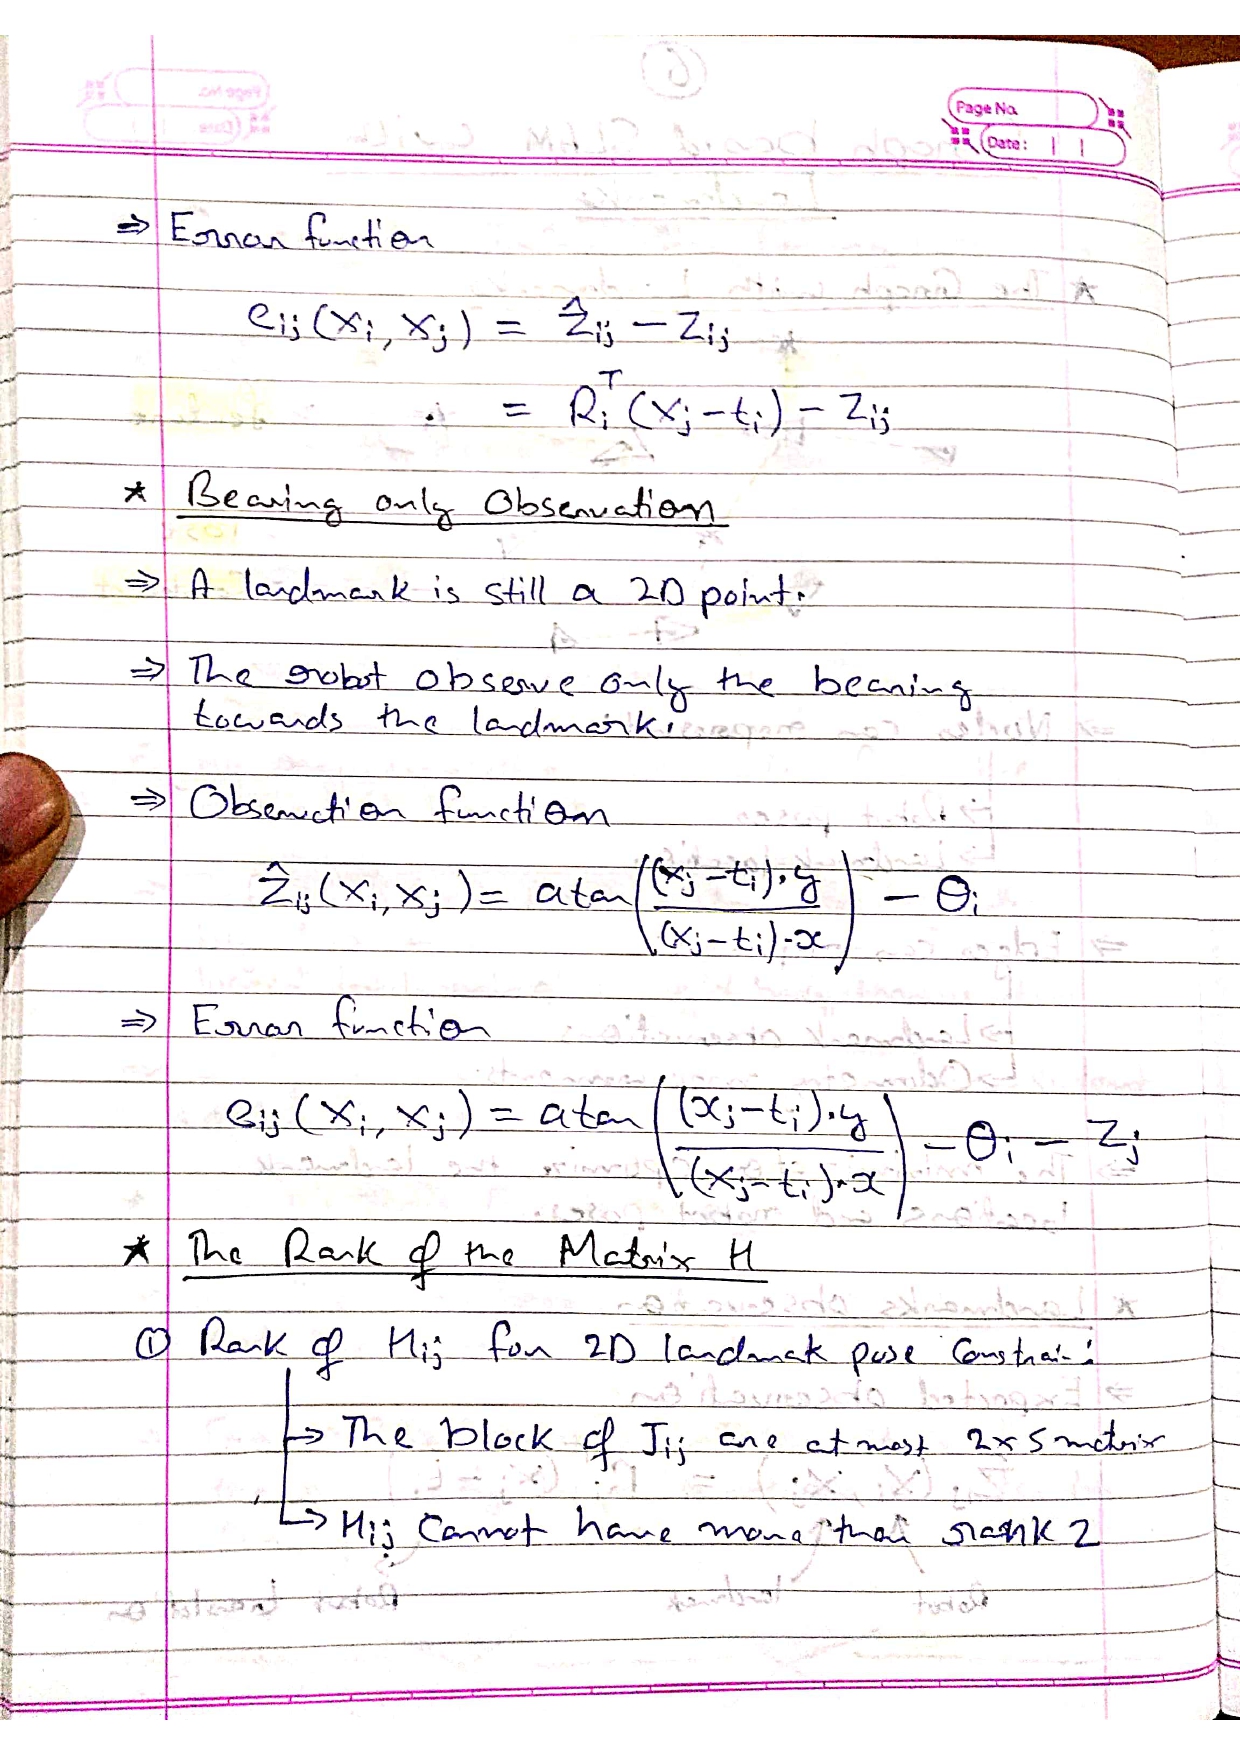 Page No.
Date:
⇒ Error function
eij (xi, xj) = ẑij − zij
= Ri^T (xj − ti) − zij
* Bearing only Observation
⇒ A landmark is still a 2D point.
⇒ The robot observe only the bearing
towards the landmark.
⇒ Observation function
ẑij (xi, xj) = atan((xj − ti).y / (xj − ti).x) − θi
⇒ Error function
eij (xi, xj) = atan((xj − ti).y / (xj − ti).x) − θi − zj
* The Rank of the Matrix H
① Rank of Hij for 2D landmak pose Constrain:
→ The block of Jij are at most 2x5 matrix
→ Hij Cannot have more than rank 2